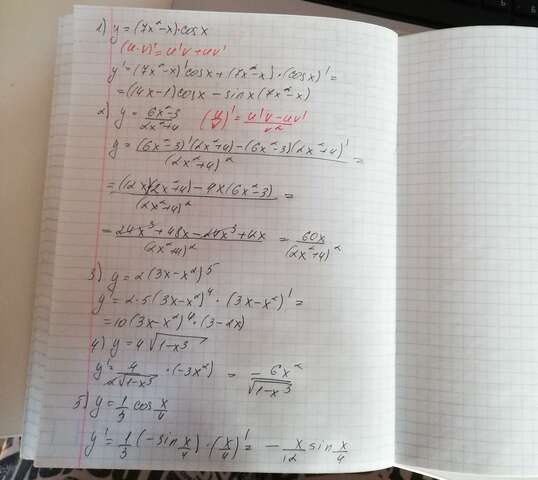 1) y=(7x²-x)·cosx
(u·v)'=u'v+uv'
y'=(7x²-x)'cosx+(7x²-x)·(cosx)'=
=(14x-1)cosx-sinx(7x²-x)
2) y=(6x²-3)/(2x²+4) (u/v)'=(u'v-uv')/v²
y=((6x²-3)'(2x²+4)-(6x²-3)(2x²+4)')/(2x²+4)²=
=(12x(2x²+4)-4x(6x²-3))/(2x²+4)²=
=(24x³+48x-24x³+12x)/(2x²+4)²=60x/(2x²+4)²
3) y=2(3x-x²)⁵
y'=2·5(3x-x²)⁴·(3x-x²)'=
=10(3x-x²)⁴·(3-2x)
4) y=4√(1-x³)
y'=4/(2√(1-x³))·(-3x²)=-6x²/√(1-x³)
5) y=1/3 cos x/4
y'=1/3(-sin x/4)·(x/4)'=-x/12 sin x/4